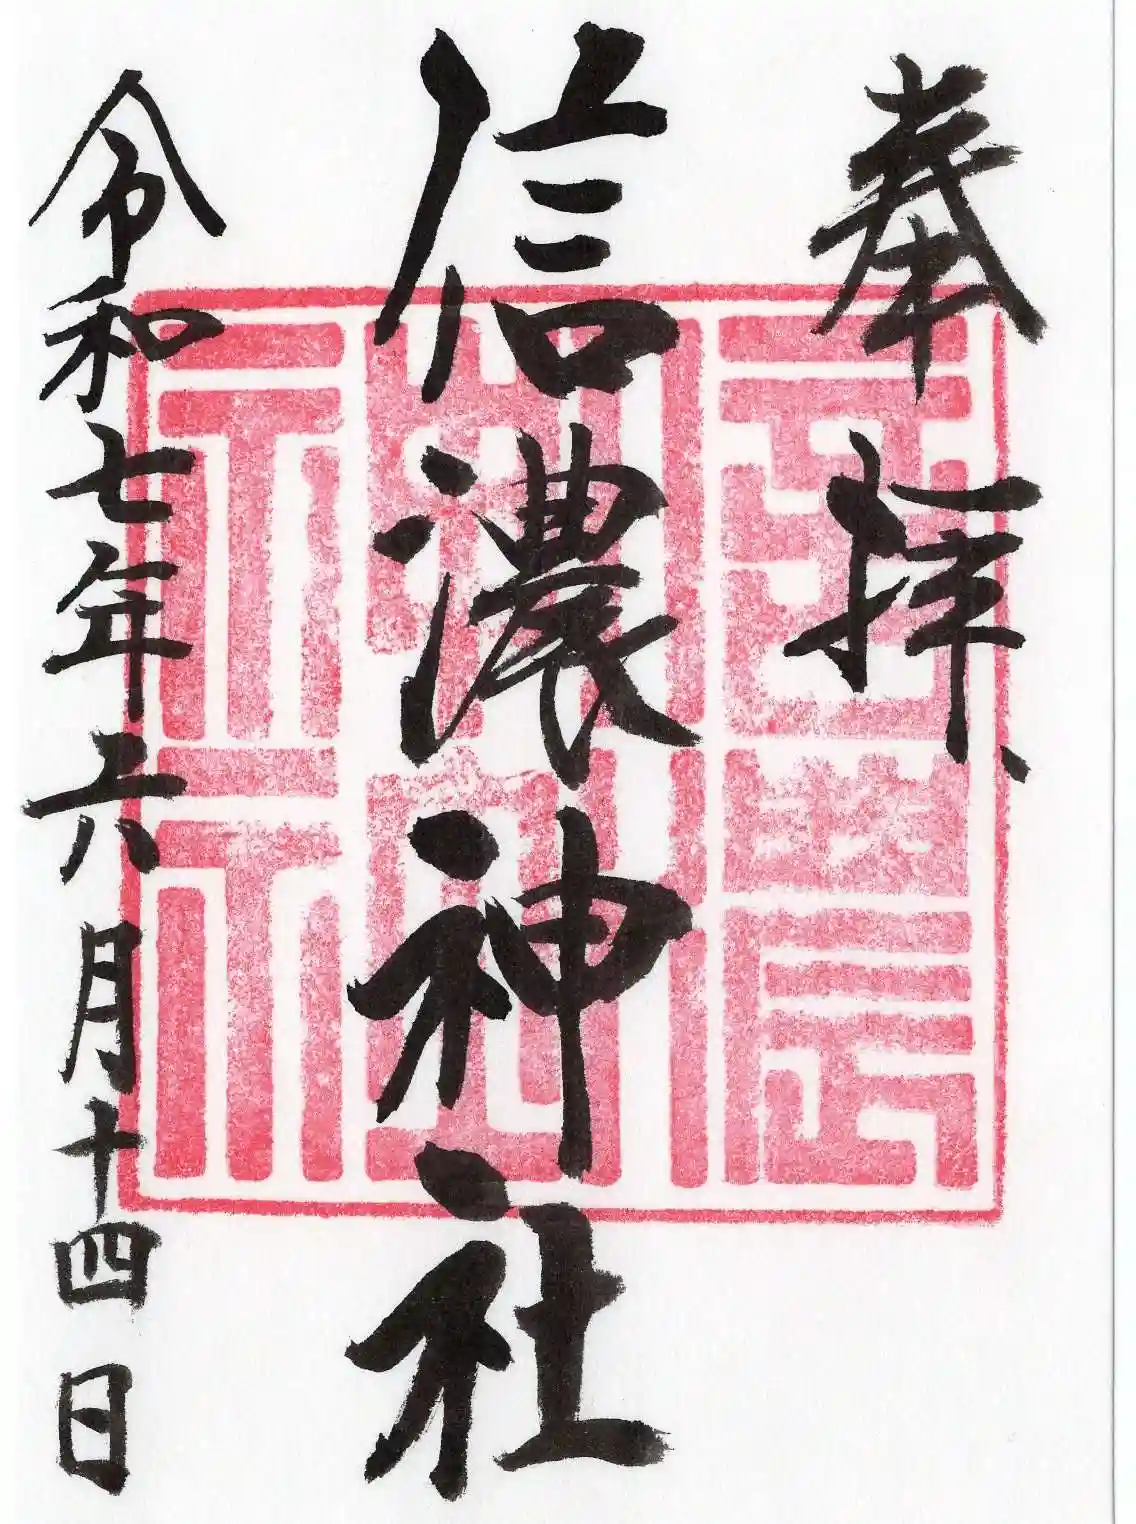 奉拝
信濃神社
令和七年六月十四日